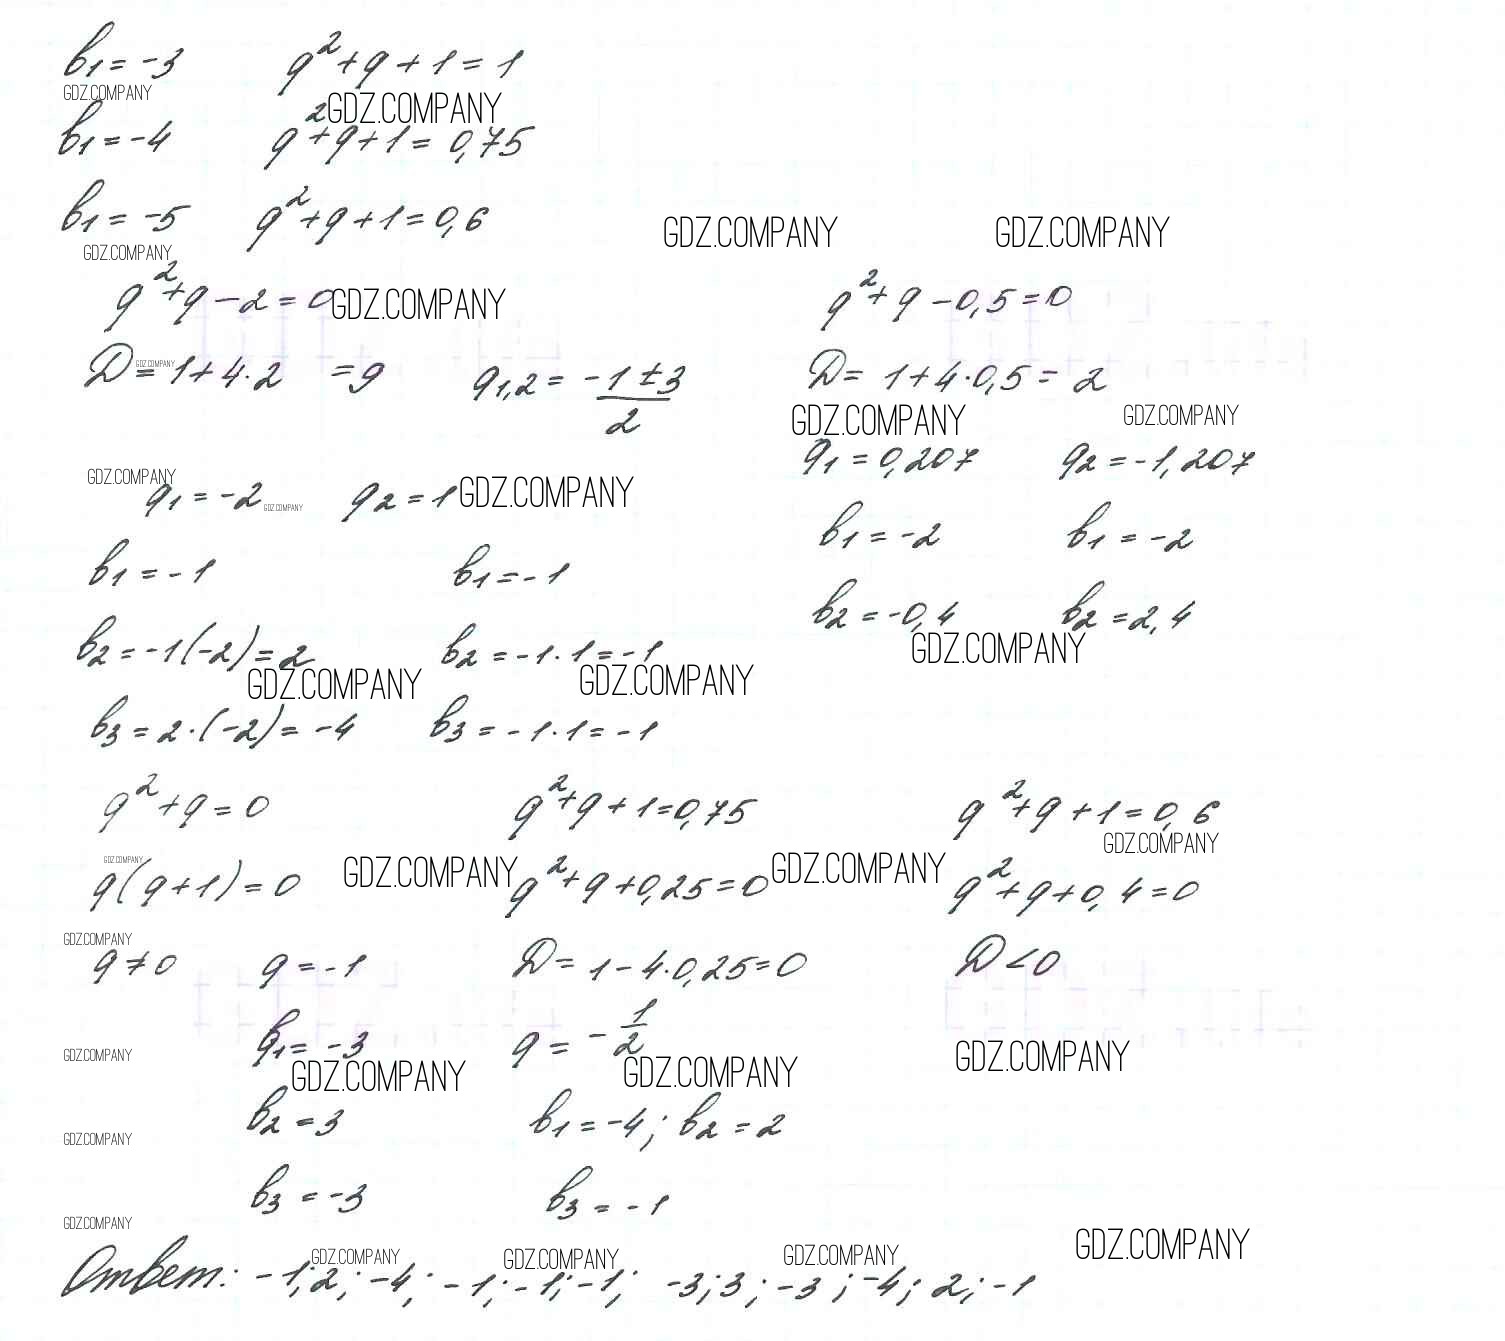 b₁ = -3 q² + q + 1 = 1
GDZ.COMPANY
GDZ.COMPANY
b₁ = -4 q² + q + 1 = 0,75
b₁ = -5 q² + q + 1 = 0,6
GDZ.COMPANY GDZ.COMPANY
GDZ.COMPANY
q² + q - 2 = 0 GDZ.COMPANY q² + q - 0,5 = 0
GDZ.COMPANY
D = 1 + 4·2 = 9 q₁,₂ = (-1 ± 3)/2 D = 1 + 4·0,5 = 2
GDZ.COMPANY GDZ.COMPANY
q₁ = 0,207 q₂ = -1,207
GDZ.COMPANY
q₁ = -2 GDZ.COMPANY q₂ = 1 GDZ.COMPANY
b₁ = -2 b₁ = -2
b₁ = -1 b₁ = -1
b₂ = -0,4 b₂ = 2,4
b₂ = -1(-2) = 2 b₂ = -1·1 = -1 GDZ.COMPANY
GDZ.COMPANY GDZ.COMPANY
b₃ = 2·(-2) = -4 b₃ = -1·1 = -1
q² + q = 0 q² + q + 1 = 0,75 q² + q + 1 = 0,6
GDZ.COMPANY
GDZ.COMPANY GDZ.COMPANY GDZ.COMPANY
q(q + 1) = 0 q² + q + 0,25 = 0 q² + q + 0,4 = 0
GDZ.COMPANY
q ≠ 0 q = -1 D = 1 - 4·0,25 = 0 D < 0
b₁ = -3 q = -1/2
GDZ.COMPANY GDZ.COMPANY GDZ.COMPANY GDZ.COMPANY
b₂ = 3 b₁ = -4; b₂ = 2
GDZ.COMPANY
b₃ = -3 b₃ = -1
GDZ.COMPANY
GDZ.COMPANY GDZ.COMPANY GDZ.COMPANY GDZ.COMPANY
Ответ: -1; 2; -4; -1; -1; -1; -3; 3; -3; -4; 2; -1